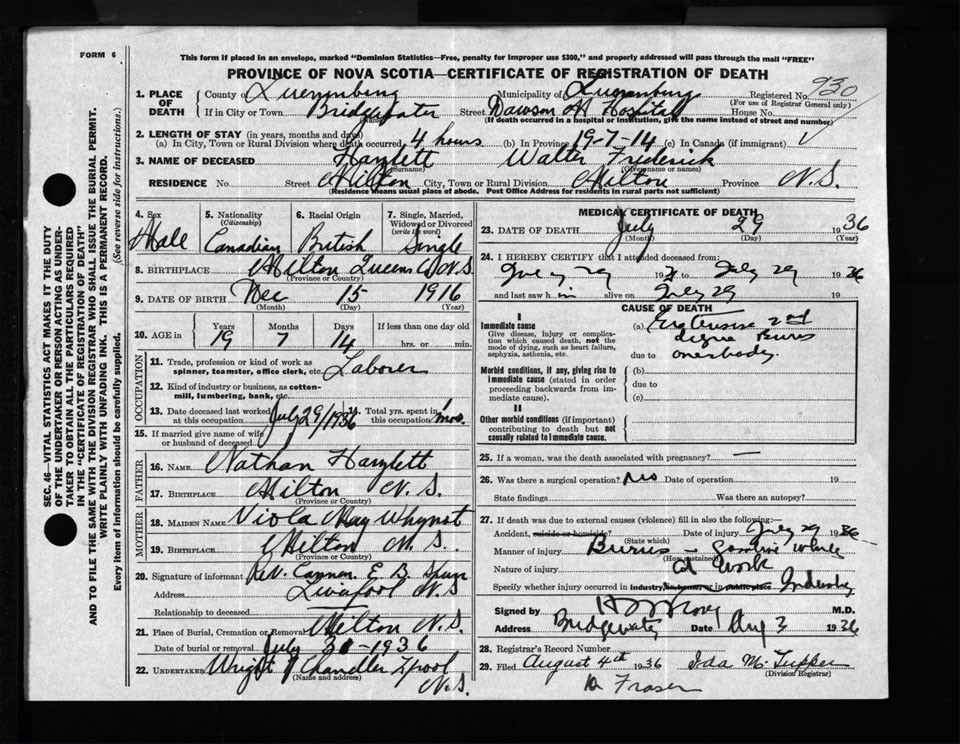 FORM 6
This form if placed in an envelope, marked "Dominion Statistics—Free, penalty for improper use $300," and properly addressed will pass through the mail "FREE"
PROVINCE OF NOVA SCOTIA—CERTIFICATE OF REGISTRATION OF DEATH
930
1. PLACE OF DEATH County of Lunenburg Municipality of Lunenburg Registered No.
(For use of Registrar General only)
If in City or Town Bridgewater Street Dawson M Hospital House No.
(If death occurred in a hospital or institution, give the name instead of street and number)
2. LENGTH OF STAY (in years, months and days)
(a) In City, Town or Rural Division where death occurred, 4 hours (b) In Province 19-7-14 (c) In Canada (if immigrant)
3. NAME OF DECEASED Hamlett Walter Frederick
(Surname) (Given name or names)
RESIDENCE No. Street Milton City, Town or Rural Division Milton Province N.S.
(Residence means usual place of abode. Post Office Address for residents in rural parts not sufficient)
4. Sex Male
5. Nationality (Citizenship) Canadian
6. Racial Origin British
7. Single, Married, Widowed or Divorced (write the word) Single
8. BIRTHPLACE Milton Queens Co N.S.
(Province or Country)
9. DATE OF BIRTH Dec 15 1916
(Month) (Day) (Year)
10. AGE in Years Months Days If less than one day old
19 7 14 hrs. or min.
OCCUPATION
11. Trade, profession or kind of work as spinner, teamster, office clerk, etc. Laborer
12. Kind of industry or business, as cotton-mill, lumbering, bank, etc.
13. Date deceased last worked at this occupation July 29/1936 Total yrs. spent in this occupation 1 mo.
15. If married give name of wife or husband of deceased
FATHER
16. NAME Nathan Hamlett
17. BIRTHPLACE Milton N.S.
(Province or Country)
MOTHER
18. MAIDEN NAME Viola May Whynot
19. BIRTHPLACE Milton N.S.
(Province or Country)
20. Signature of informant Rev. Cannon E. B. Spurr
Address Liverpool N.S
Relationship to deceased
21. Place of Burial, Cremation or Removal Milton N.S.
Date of burial or removal July 31-1936
22. UNDERTAKER Wright Chandler Lpool
(Name and address) N.S.
MEDICAL CERTIFICATE OF DEATH
23. DATE OF DEATH July 29 1936
(Month) (Day) (Year)
24. I HEREBY CERTIFY that I attended deceased from:
July 29 19 to July 29 1936
and last saw him alive on July 29 19
CAUSE OF DEATH
I
Immediate cause
Give disease, injury or complication which caused death, not the mode of dying, such as heart failure, asphyxia, asthenia, etc.
(a) Extensive 2nd degree Burns
due to ones body.
Morbid conditions, if any, giving rise to immediate cause (stated in order proceeding backwards from immediate cause).
(b)
due to
(c)
II
Other morbid conditions (if important) contributing to death but not causally related to immediate cause.
25. If a woman, was the death associated with pregnancy? —
26. Was there a surgical operation? no Date of operation 19
State findings Was there an autopsy?
27. If death was due to external causes (violence) fill in also the following:—
Accident, suicide or homicide? Date of injury July 29 1936
(State which)
Manner of injury Burns - Gasoline while
(How sustained)
Nature of injury at work
Specify whether injury occurred in industry, in home, or in public place Industry
Signed by M.D.
Address Bridgewater Date Aug 3 1936
28. Registrar's Record Number
29. Filed August 4th 1936 Ida M. Tupper
(Division Registrar)
Fraser
SEC. 46—VITAL STATISTICS ACT MAKES IT THE DUTY
OF THE UNDERTAKER OR PERSON ACTING AS UNDER-
TAKER TO OBTAIN ALL THE PARTICULARS REQUIRED
IN THE "CERTIFICATE OF REGISTRATION OF DEATH"
AND TO FILE THE SAME WITH THE DIVISION REGISTRAR WHO SHALL ISSUE THE BURIAL PERMIT.
WRITE PLAINLY WITH UNFADING INK. THIS IS A PERMANENT RECORD.
Every item of information should be carefully supplied. (See reverse side for instructions.)